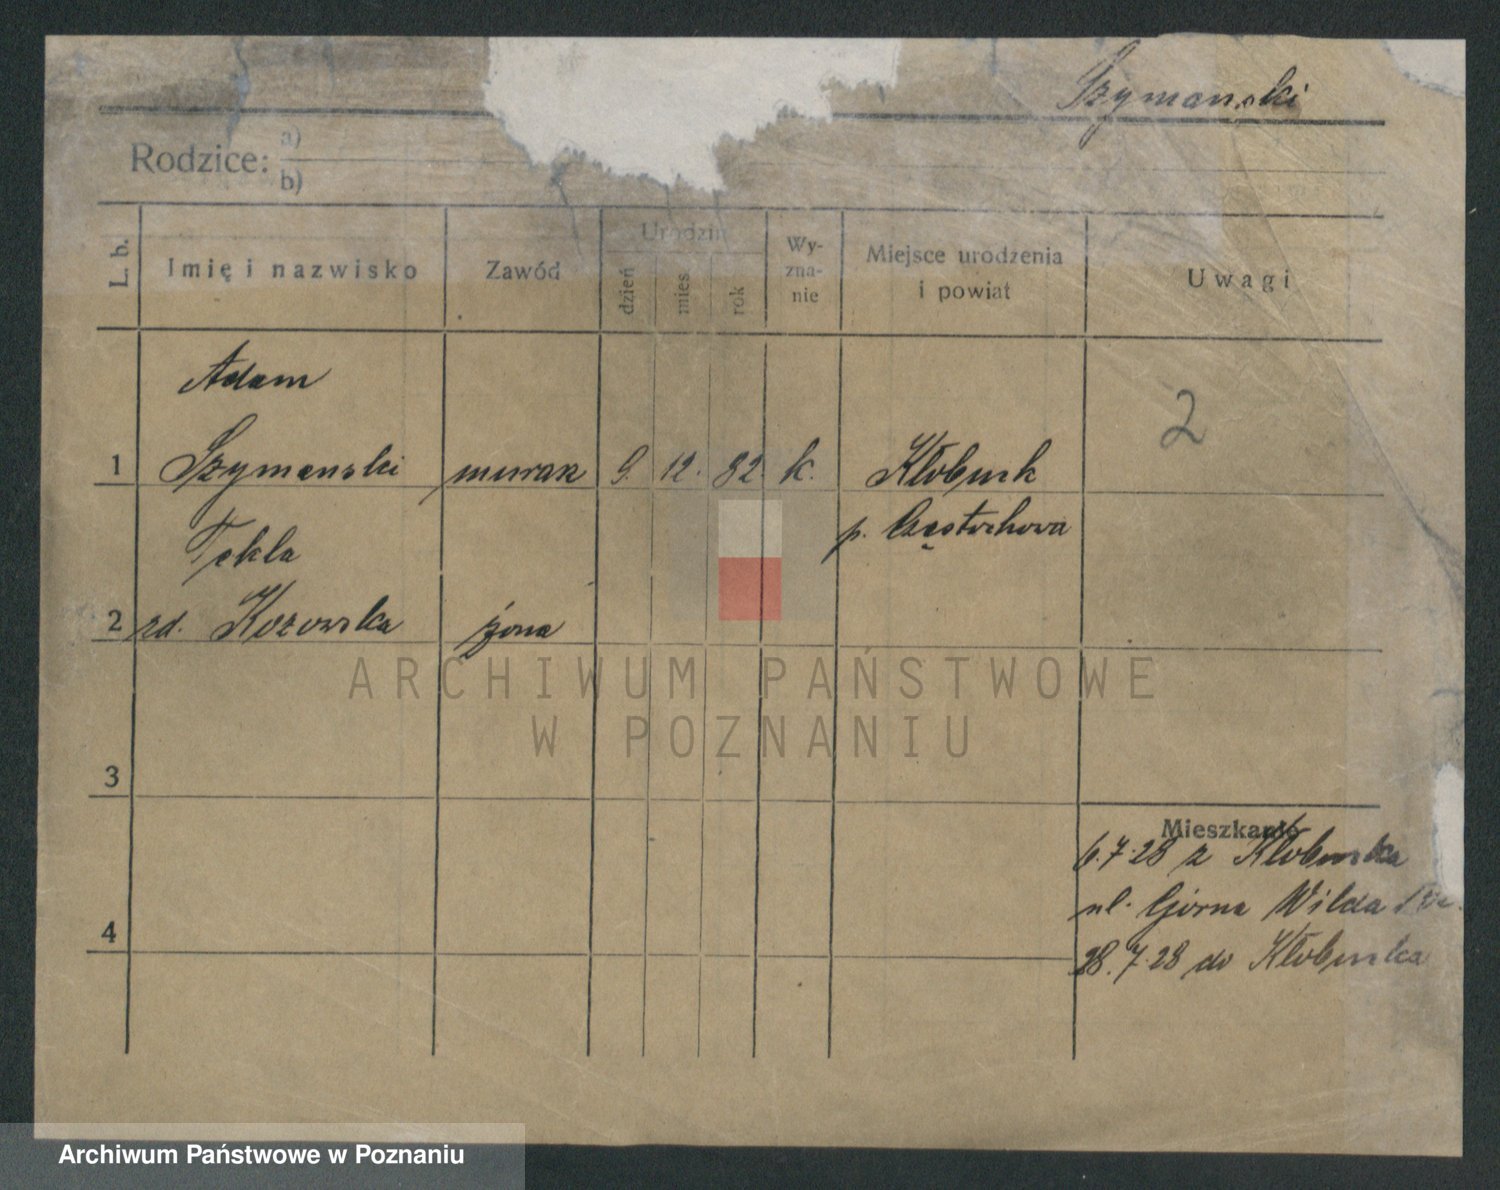 Szymanski
Rodzice: a)
b)
L. b.
Imię i nazwisko
Zawód
Urodzin
dzień
mies.
rok
Wy-
zna-
nie
Miejsce urodzenia
i powiat
Uwagi
Adam
2
1 Szymanski murarz 9. 12. 82. k. Kłobuck
p. Częstochowa
Tekla
2 zd. Kozowska żona
ARCHIWUM PAŃSTWOWE
W POZNANIU
3
Mieszkanie
6.7.28 z Kłobucka
ul. Górna Wilda
4
28.7.28 do Kłobucka
Archiwum Państwowe w Poznaniu